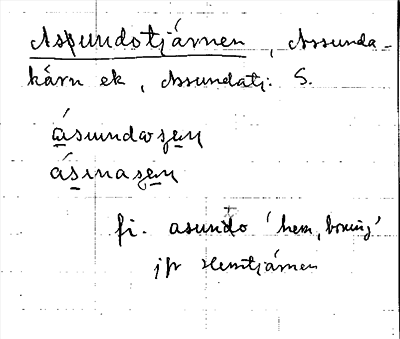 Aspundotjärnen, Assunda-
kärn ek, Assundatj: S.
ásundaʒen
ásinaʒen
fi. asunto 'hem, boning'
jfr Hemtjärnen